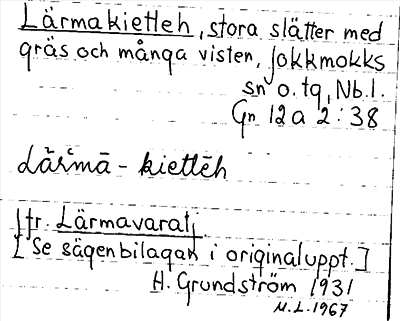 Lärmakietleh, stora slätter med
gräs och många visten, Jokkmokks
sn o. tg, Nb.l.
Gn 12a 2:38
lā̆šmā - kiettēh
[fr. Lärmavarat]
[Se sägenbilagan i originaluppt.]
H. Grundström 1931
M.L. 1967